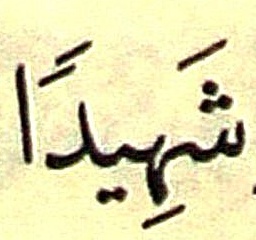 شَهِيدًا